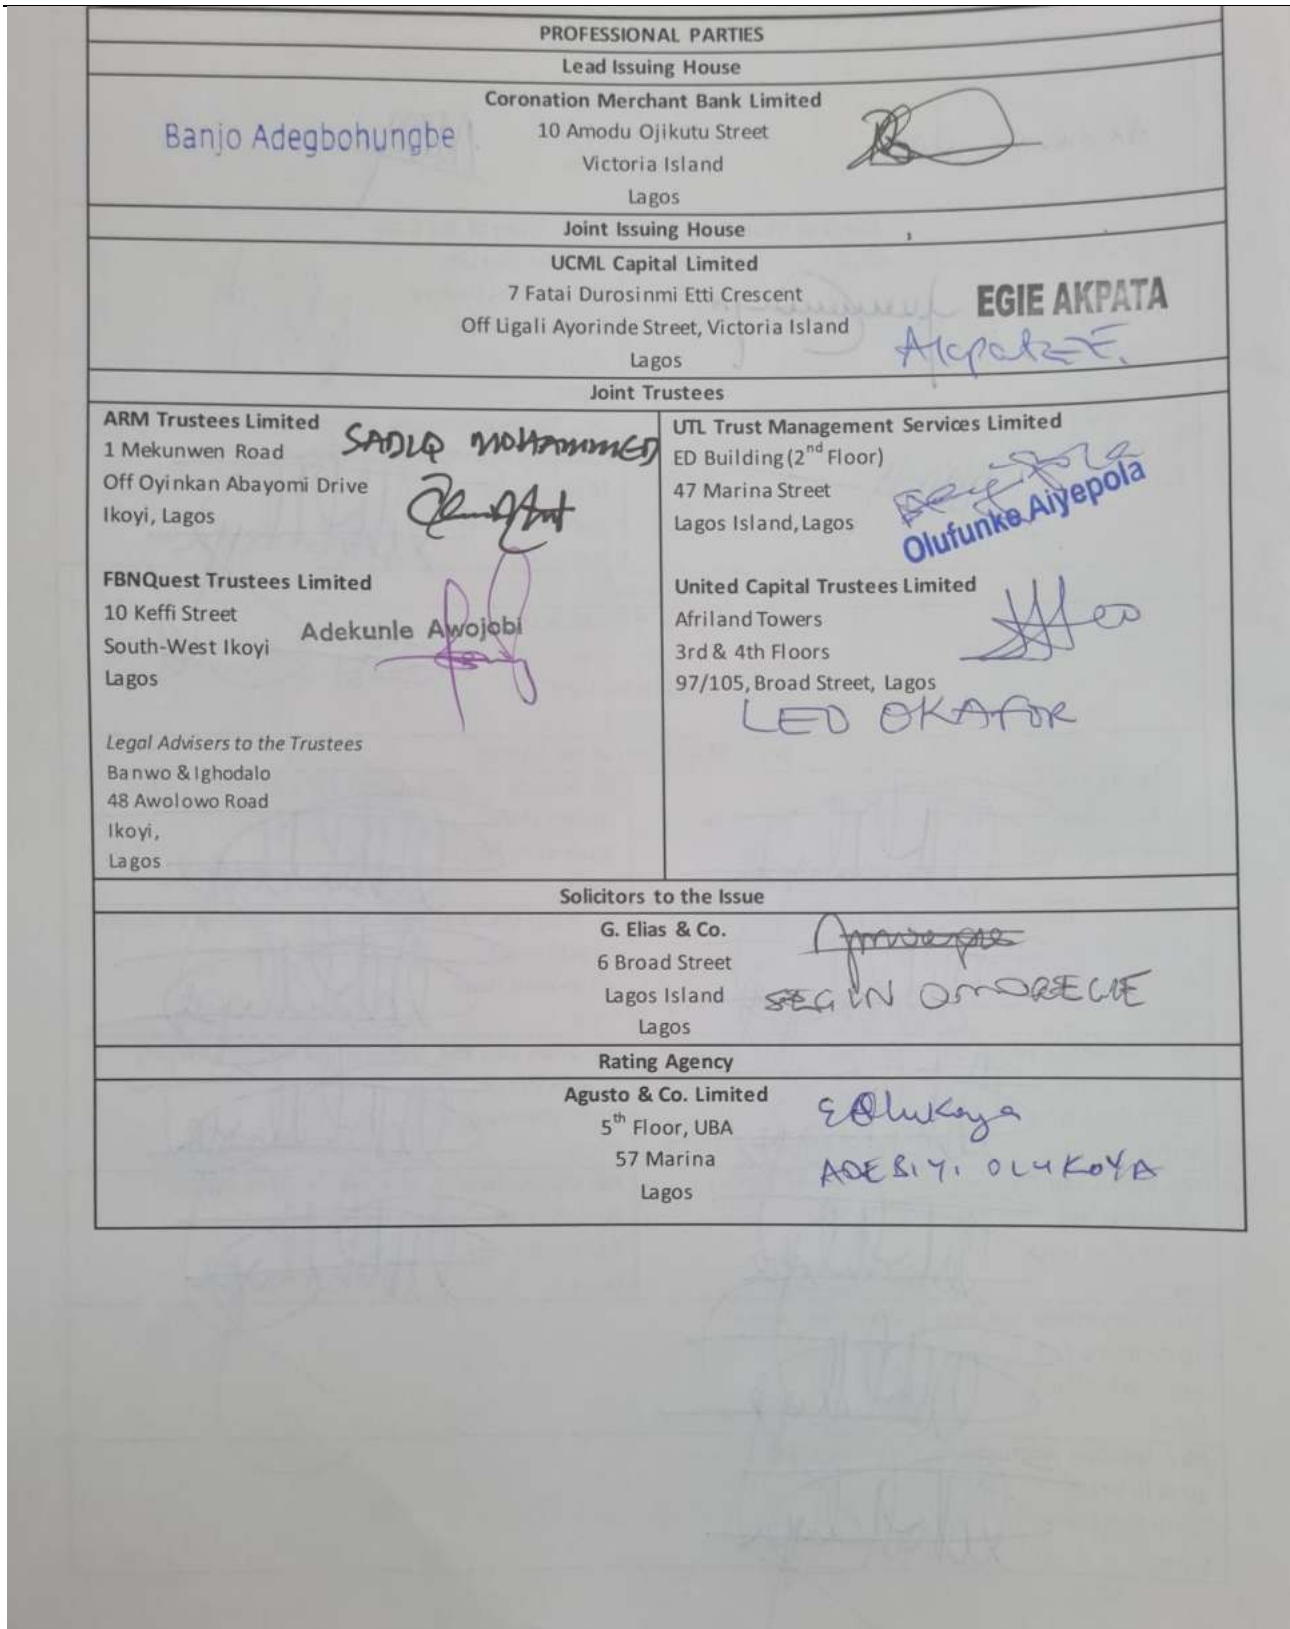 PROFESSIONAL PARTIES
Lead Issuing House
Coronation Merchant Bank Limited
10 Amodu Ojikutu Street
Victoria Island
Lagos
Banjo Adegbohungbe
Joint Issuing House
UCML Capital Limited
7 Fatai Durosinmi Etti Crescent
Off Ligali Ayorinde Street, Victoria Island
Lagos
EGIE AKPATA
Joint Trustees
ARM Trustees Limited
1 Mekunwen Road
Off Oyinkan Abayomi Drive
Ikoyi, Lagos
SADIQ MOHAMMED
FBNQuest Trustees Limited
10 Keffi Street
South-West Ikoyi
Lagos
Adekunle Awojobi
Legal Advisers to the Trustees
Banwo & Ighodalo
48 Awolowo Road
Ikoyi,
Lagos
UTL Trust Management Services Limited
ED Building (2nd Floor)
47 Marina Street
Lagos Island, Lagos
Olufunke Aiyepola
United Capital Trustees Limited
Afriland Towers
3rd & 4th Floors
97/105, Broad Street, Lagos
LEO OKAFOR
Solicitors to the Issue
G. Elias & Co.
6 Broad Street
Lagos Island
Lagos
SEGUN OMOREGIE
Rating Agency
Agusto & Co. Limited
5th Floor, UBA
57 Marina
Lagos
ADEBIYI OLUKOYA